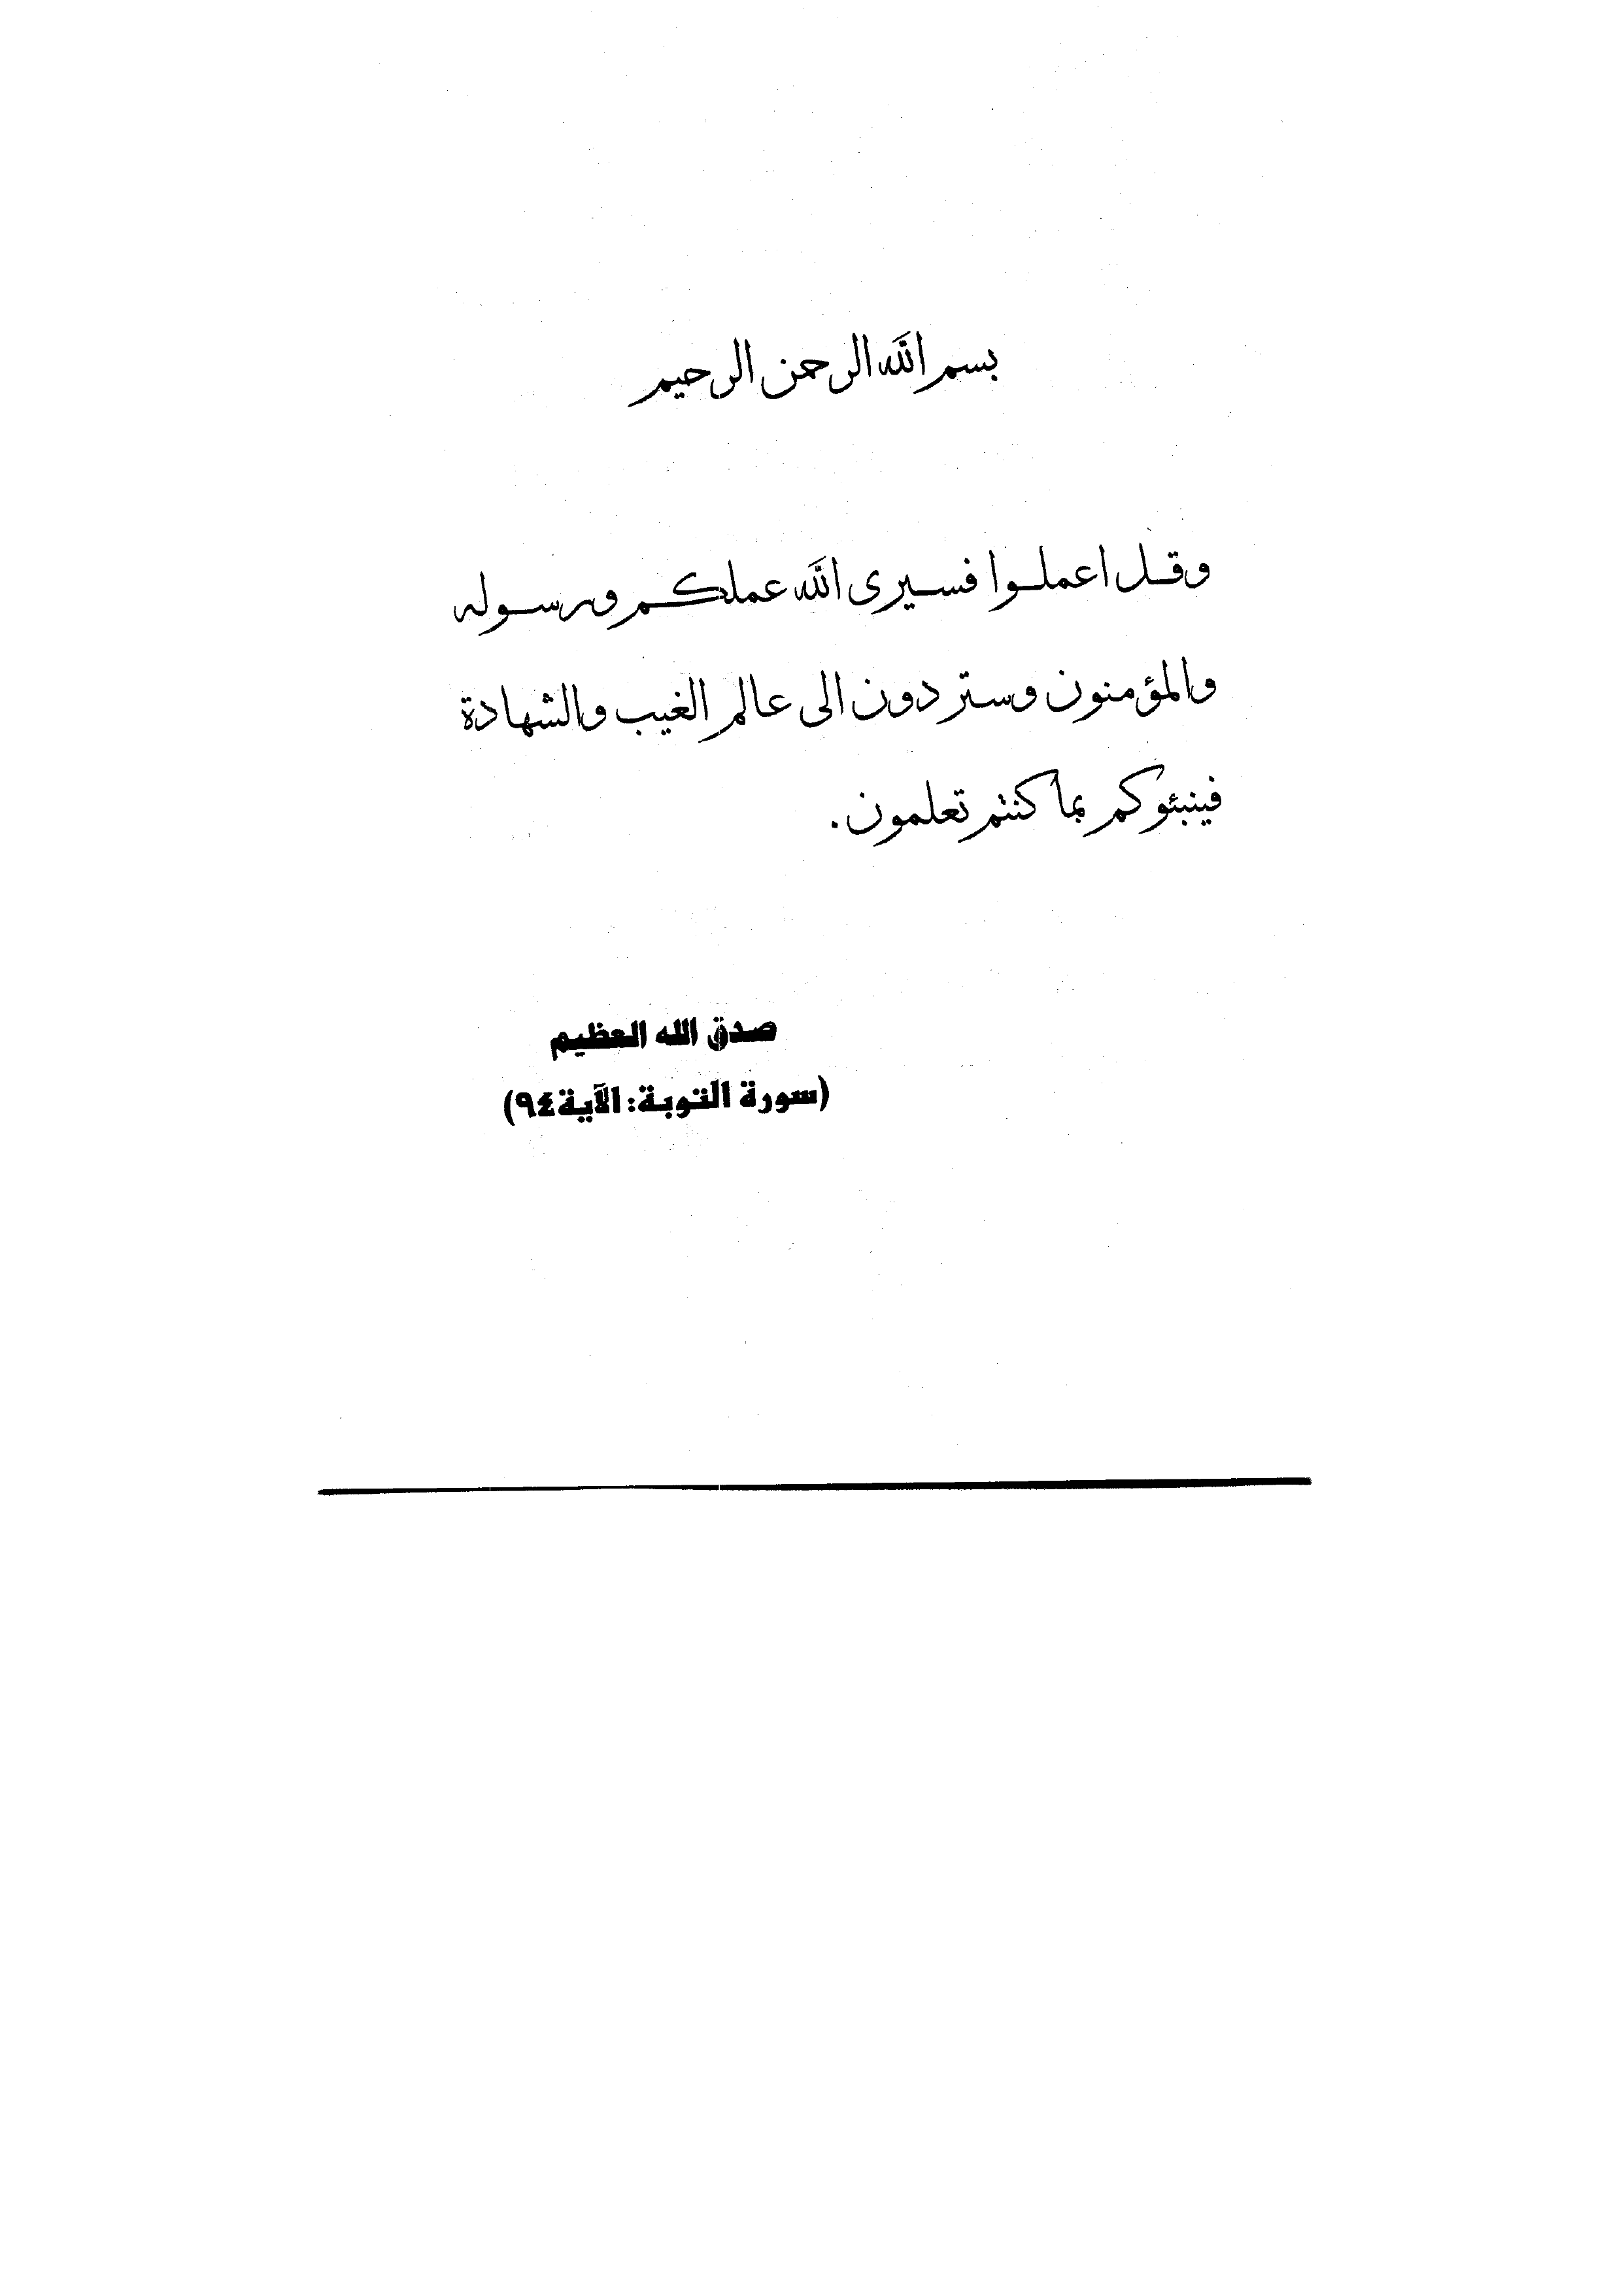 بسم الله الرحمن الرحيم
وقل اعملوا فسيرى الله عملكم ورسوله
والمؤمنون وستردون الى عالم الغيب والشهادة
فينبئوكم بما كنتم تعلمون.
صدق الله العظيم
(سورة التوبة: الآية ٩٤)